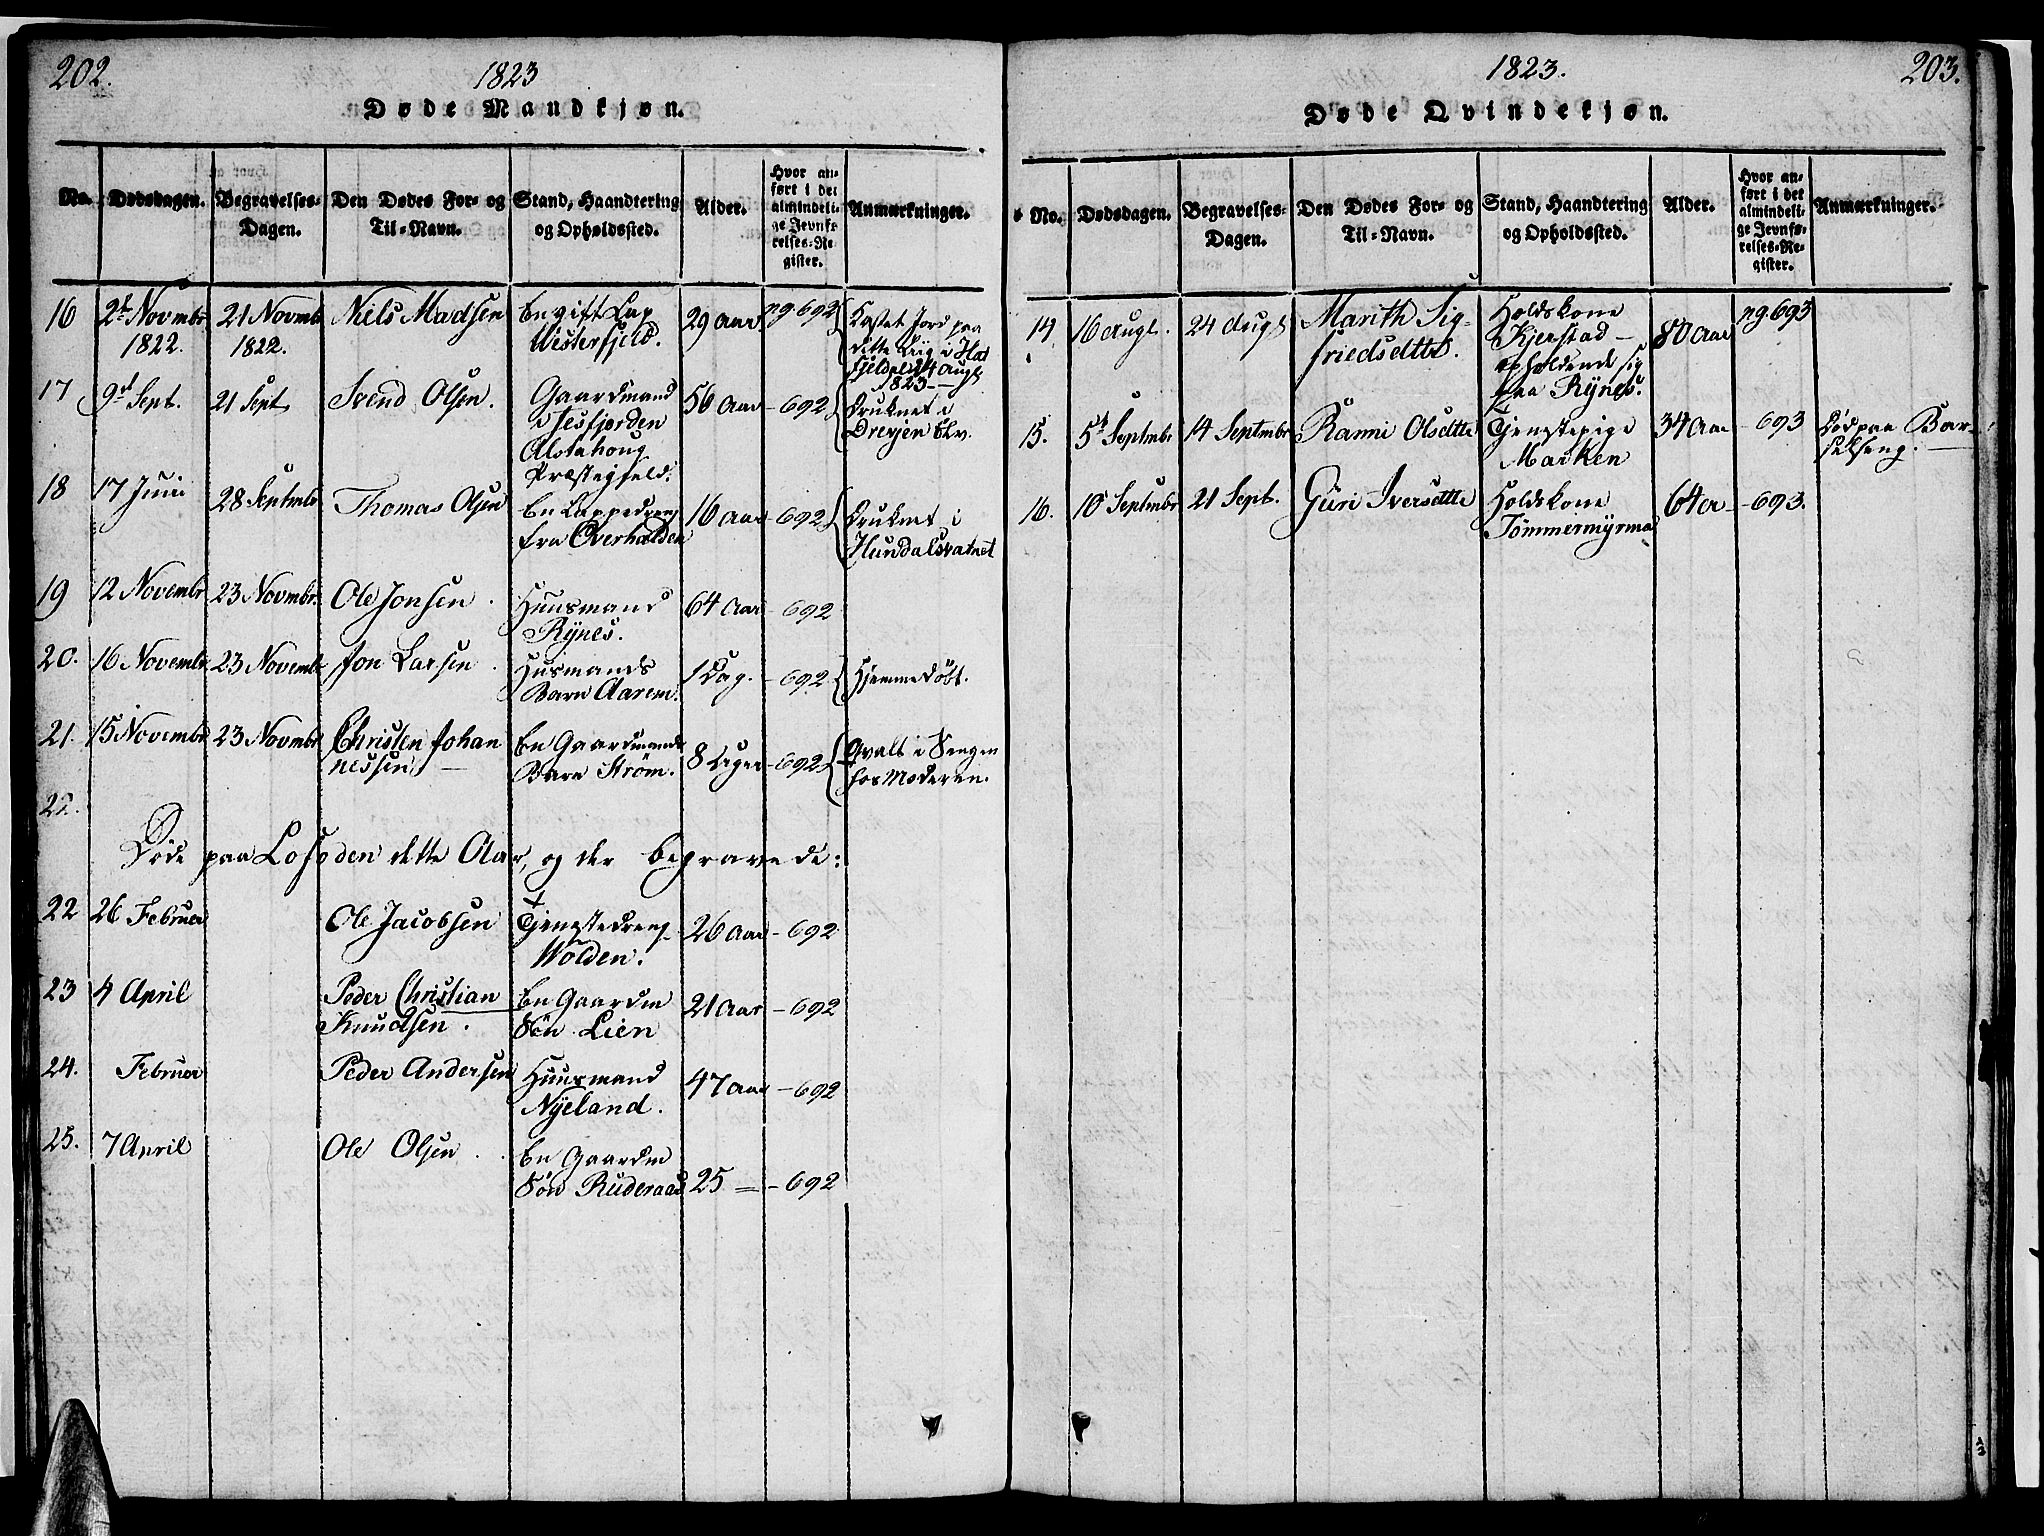 202.
1823
Døde Mandkjøn.
No.
Dødsdagen.
Begravelses-
Dagen.
Den Dødes For- og
Til-Navn.
Stand, Haandtering
og Opholdssted.
Alder.
Hvor an-
ført i det
almindeli-
ge Jevnfø-
relses-Re-
gister.
Anmærkninger.
16
2d Novmbr
1822.
21 Novmb
1822.
Niels Madsen
En gift Lap
Westerfjeld.
29 Aar
pg 692
Kastet Jord paa
dette Liig i Hat
fjeldal 24 Augt
1823
17
9d Sept.
21 Sept
Svend Olsen.
Gaardmand
Alstahoug
Præstegjeld.
56 Aar
- 692
Druknet i
Drevjen Elv.
18
17 Junii
28 Septmbr
Thomas Olsen
En Lappedreng
fra Overhalden
16 Aar
- 692
Druknet i
Hundalsvatnet
19
12 Novembr
23 Novmbr.
Ole Jonsen.
Huusmand
Rÿnes.
64 Aar
- 692
20.
16 Novembr
23 Novembr
Jon Larsen.
Husmands
Barn Aarem.
1 Dag.
- 692
Hjemmedøbt.
21.
15 Novembr
23 Novmbr
Christen Johan
nessen
En Gaardmands
Barn Strøm.
8 Uger
- 692
Qvalt i Sengen
hos Moderen.
22.
Døde paa Lofoden dette Aar, og der begravede:
22
26 Februar
Ole Jacobsen
Tjenstedreng
Wolden.
26 Aar
- 692
23
4 April
Peder Christian
Knudsen.
En Gaardm
Søn Lien
21 Aar
- 692
24.
Februar
Peder Andersen
Huusmand
Nÿeland.
47 Aar
- 692
25.
7 April
Ole Olsen.
En Gaardm
Søn Ruderaas
25 =
- 692
1823.
203.
Døde Qvindekjøn.
No.
Dødsdagen.
Begravelses-
Dagen.
Den Dødes For- og
Til-Navn.
Stand, Haandtering
og Opholdssted.
Alder.
Hvor an-
ført i det
almindeli-
ge Jevnfø-
relses-Re-
gister.
Anmærkninger.
14
16 Augt.
24 Augt
Marith Sig-
friedsdtter.
Holdskone
Kjerstad -
opholdende sig
paa Rÿnes.
80 Aar
pg 693
15.
5d Septmbr
14 Septmbr
Ranni Olsdtter
Tjenstepige
Marken
34 Aar
- 693
Død paa Bar-
selseng.
16.
10 Septmbr
21 Sept.
Guri Iversdtter
Holdskone
Tømmermyrma
64 Ar
- 693.